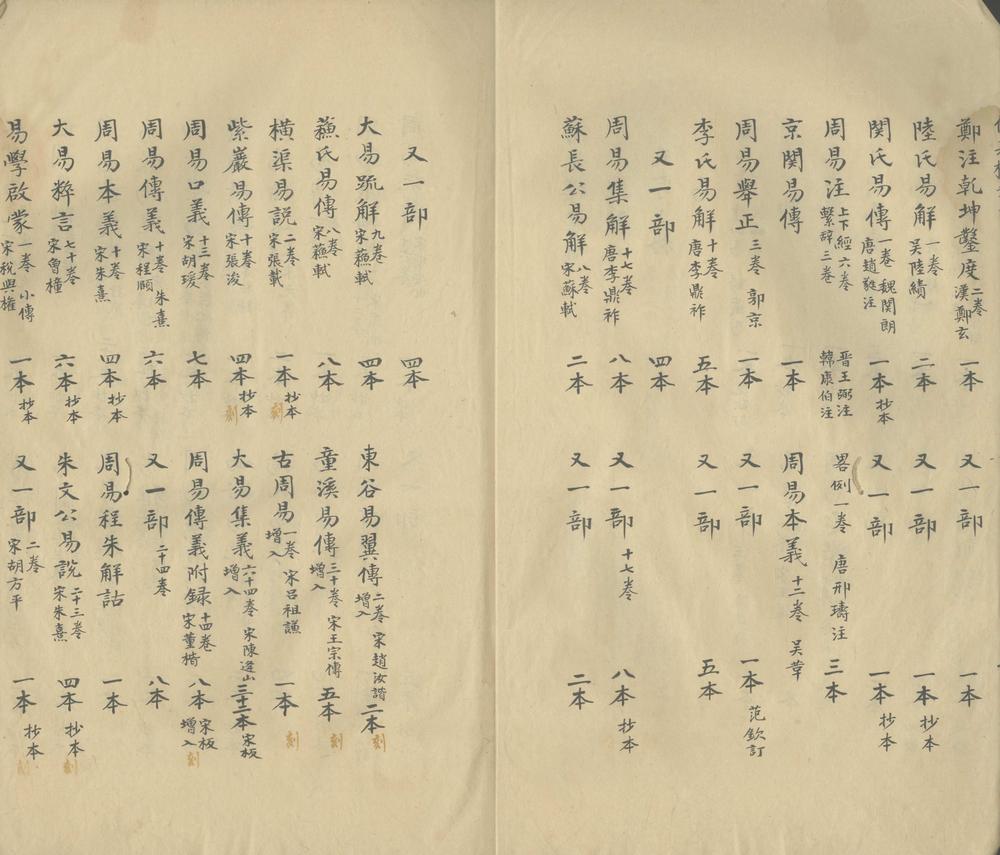 鄭注乾坤鑿度 二卷 漢鄭玄 一本 又一部 一本
陸氏易解 一卷 吳陸績 二本 又一部 一本 抄本
関氏易傳 一卷 魏関朗 唐趙蕤注 一本 抄本 又一部 一本 抄本
周易注 上下經六卷 繫辞三卷 晋王弼注 韓康伯注 畧例一卷 唐邢璹注 三本
京関易傳 一本 周易本義 十二卷 吴葦
周易舉正 三卷 郭京 一本 又一部 一本 范欽訂
李氏易解 十卷 唐李鼎祚 五本 又一部 五本
又一部 四本
周易集解 十七卷 唐李鼎祚 八本 又一部 十七卷 八本 抄本
蘇長公易解 八卷 宋蘇軾 二本 又一部 二本
又一部 四本
大易䟽解 九卷 宋蘓軾 四本 東谷易翼傳 二卷 增入 宋趙汝諧 二本 刻
蘓氏易傳 八卷 宋蘓軾 八本 童溪易傳 三十卷 增入 宋王宗傳 五本 刻
橫渠易説 二卷 宋張載 一本 抄本 刻 古周易 一卷 增入 宋呂祖謙 一本 刻
紫巖易傳 十卷 宋張浚 四本 抄本 刻 大易集義 六十四卷 增入 宋陳逄山 三十二本 宋板
周易口義 十三卷 宋胡瑗 七本 周易傳義附録 十四卷 宋董楷 八本 宋板 增入 刻
周易傳義 十卷 宋程頤 朱熹 六本 又一部 二十四卷 八本
周易本義 十卷 宋朱熹 四本 抄本 周易程朱解詁 一本
大易粹言 七十卷 宋曾穜 六本 抄本 朱文公易説 二十三卷 宋朱熹 四本 抄本 刻
易學啟蒙 一卷 小傳 宋税與權 一本 抄本 又一部 二卷 宋胡方平 一本 抄本 刻